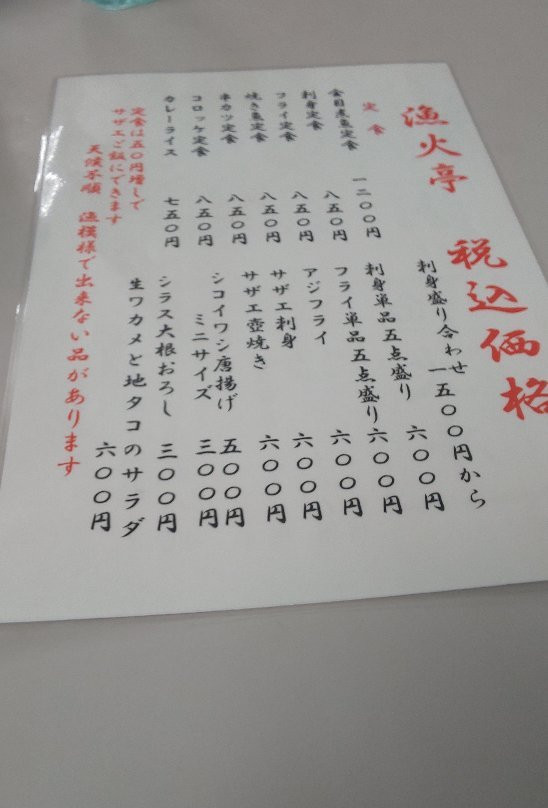 漁火亭
税込価格
定食
金目煮魚定食 一二〇〇円
刺身定食 八五〇円
フライ定食 八五〇円
焼き魚定食 八五〇円
串カツ定食 八五〇円
コロッケ定食 八五〇円
カレーライス 七五〇円
定食は五〇円増しで
サザエご飯にできます
天候不順 漁模様で出来ない品があります
刺身盛り合わせ 一五〇〇円から
刺身単品 五点盛り 六〇〇円
フライ単品 五点盛り 六〇〇円
アジフライ 六〇〇円
サザエ刺身 六〇〇円
サザエ壺焼き 六〇〇円
シコイワシ唐揚げ 五〇〇円
ミニサイズ 三〇〇円
シラス大根おろし 三〇〇円
生ワカメと地タコのサラダ
六〇〇円